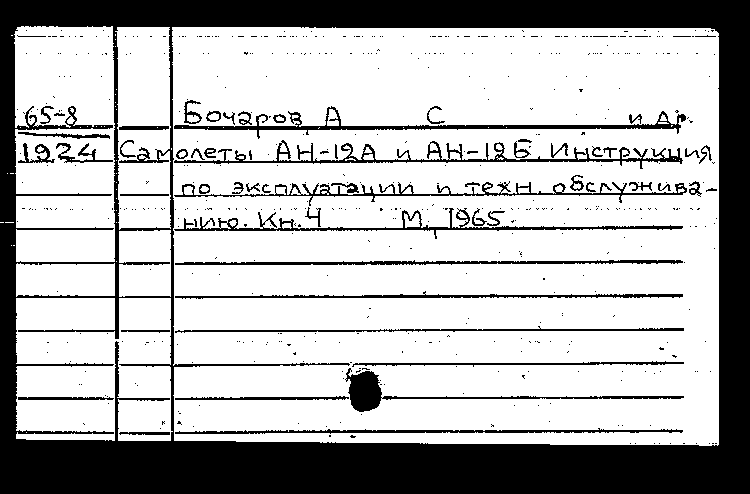 65-8 Бочаров, А С и др.
1924 Самолеты АН-12А и АН-12Б. Инструкция
по эксплуатации и техн. обслужива-
нию. Кн. 4 М., 1965.